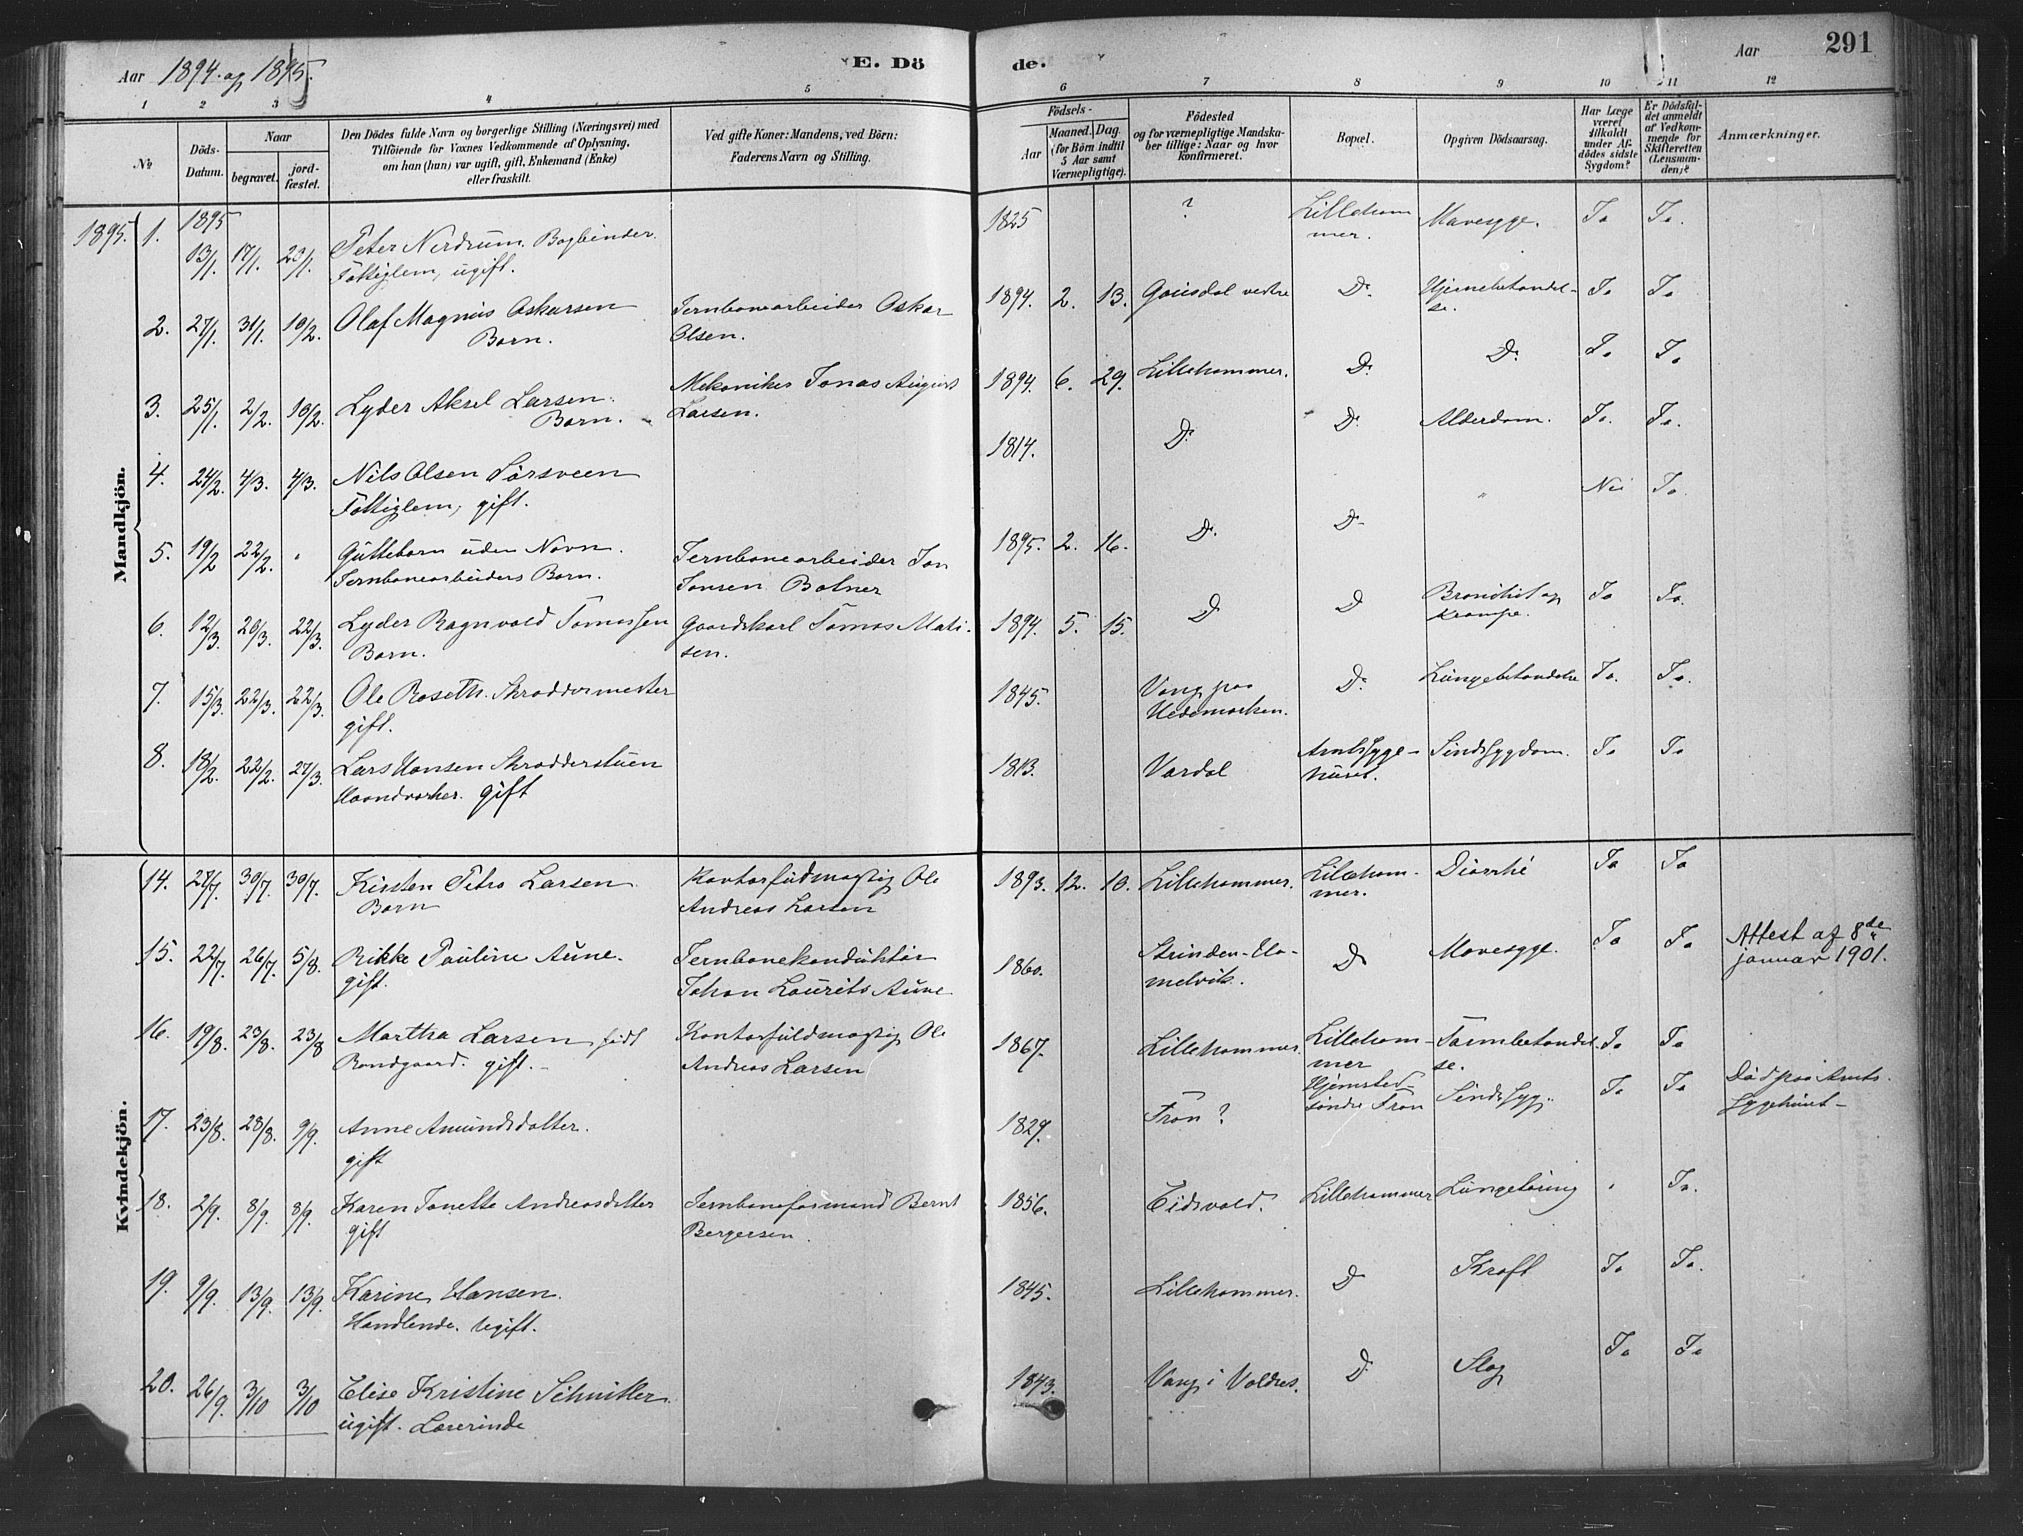 Aar 1894 og 1895.
E. Dö
de.
Aar
291
1 2 3 4 5 6 7 8 9 10 11 12
No
Döds-
Datum.
Naar
begravet.
jord-
fæstet.
Den Dödes fulde Navn og borgerlige Stilling (Næringsvei) med
Tilföiende for Voxnes Vedkommende af Oplysning,
om han (hun) var ugift, gift, Enkemand (Enke)
eller fraskilt.
Ved gifte Koner: Mandens, ved Börn:
Faderens Navn og Stilling.
Födsels-
Aar
Maaned. Dag.
(for Börn indtil
5 Aar samt
Værnepligtige).
Födested
og for værnepligtige Mandska-
ber tillige: Naar og hvor
konfirmeret.
Bopæl.
Opgiven Dödsaarsag.
Har Læge
været
tilkaldt
under Af-
dödes sidste
Sygdom?
Er Dödsfal-
det anmeldt
af Vedkom-
mende for
Skifteretten
(Lensman-
den)?
Anmærkninger.
Mandkjön.
1895. 1. 1895 13/1. 17/1. 23/1. Peter Nerdrum. Bogbinder. 1825 ? Lilleham Mavesyge. Ja Ja.
Fattiglem, ugift. mer.
2. 27/1. 31/1. 10/2. Olaf Magnus Oskarsen Jernbanearbeider Oskar 1894. 2. 13. Gausdal vestre D. Hjernebetændel- Ja Ja
Barn. Olsen. se.
3. 25/1. 2/2. 10/2. Lyder Aksel Larsen. Mekaniker Jonas August 1894. 6. 29. Lillehammer. D. D. Ja Ja
Barn. Larsen.
4. 24/2. 4/3. 4/3. Nils Olsen Sørsveen 1814. D. D. Alderdom. Ja. Ja.
Fattiglem, gift.
5. 19/2 22/2. " Guttebarn uden Navn. Jernbanearbeider Jon 1895. 2. 16. D. D. " Nei Ja.
Jernbanearbeiders Barn. Jonsen Botner
6. 12/3. 20/3. 22/3. Lyder Ragnvald Tomassen Gaardskarl Tomas Mati- 1894. 5. 15. D D Bronchit og Ja Ja.
Barn. sen. Krampe.
7. 15/3. 22/3. 22/3. Ole Roseth. Skræddermester 1845. Vang paa D. Lungebetændelse Ja. Ja.
gift. Hedemarken.
8. 18/2. 22/2. 27/3. Lars Hansen Skrædderstuen 1813. Vardal Amtssyge- Sindssygdom. Ja Ja
Haandværker. gift huset.
Kvindekjön.
14. 27/7. 30/7. 30/7. Kirsten Petra Larsen Kontorfuldmægtig Ole 1893. 12. 10. Lillehammer. Lilleham- Diarrhé Ja Ja
Barn Andreas Larsen mer.
15. 22/7. 26/7. 5/8. Rikke Pauline Aune. Jernbanekonduktør 1860. Strinden-Ho- D Mavesyge. Ja Ja Attest af 8de
gift. Johan Laurits Aune melvik. januar 1901.
16. 19/8. 23/8. 23/8 Martha Larsen født Kontorfuldmægtig Ole 1867. Lillehammer. Lilleham- Tarmbetændel- Ja Ja
Bondgaard. gift. Andreas Larsen mer se.
17. 23/8. 28/8. 9/9. Anne Amundsdatter. 1829. Fron? Hjemsted- Sindssyg. Ja Ja Død paa Amts-
gift søndre Fron sygehuset
18. 2/9. 8/9. 8/9. Karen Tonette Andreasdatter Jernbaneformand Bernt 1856. Eidsvold. Lillehammer Lungetæring " Ja.
gift Bergersen.
19. 9/9. 13/9. 13/9. Karine Hansen. 1845. Lillehammer. D Kræft Ja Ja.
Handlende. Ugift.
20. 26/9. 3/10 3/10 Elise Kristine Schnitler. 1843. Vang i Valdres. D. Slag Ja Ja
ugift. Lærerinde